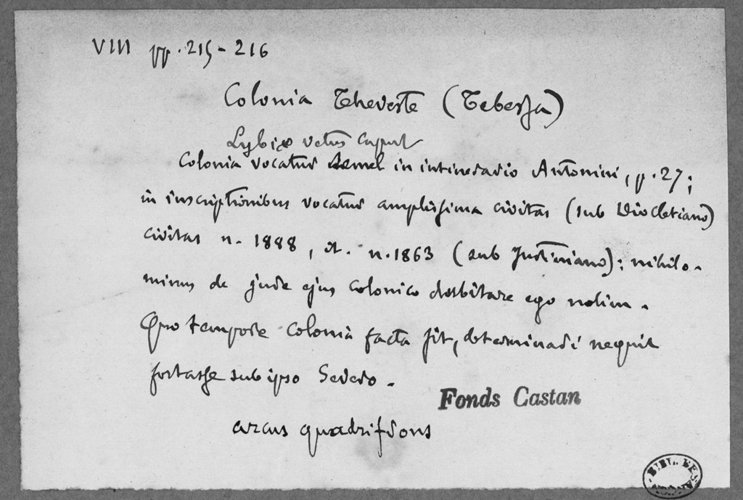 VIII pp. 215-216
Colonia Theveste (Tebessa)
Lybiæ vetus caput
Colonia vocatur semel in intinerario Antonini, p. 27;
in inscriptionibus vocatur amplissima civitas (sub Diocletiano)
civitas n. 1888, et n. 1863 (sub Justiniano); nihilo-
minus de jure ejus colonico dubitare ego nolim.
Quo tempore colonia facta sit, determinari nequit
fortasse sub ipso Severo.
Fonds Castan
arcus quadrifrons